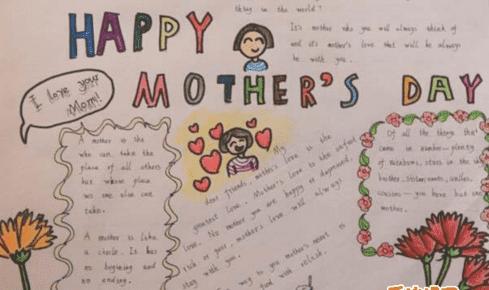 thing in the world?
It's mother who you will always think of
and it's mother's love that will be always
be with you.
HAPPY
MOTHER'S DAY
I love you
Mom!
A mother is she
who can take the
place of all others
but whose place
no one else can
take.
A mother is like
a circle. It has
no beginning and
no ending.
My
dear friends, mother's love is the
greatest love. Mother's love is the
love. No matter you are happy or depressed,
rich or poor, mother's love will always
stay with you.
way to you mother's heart is
with
Of all the things that
come in number—plenty
of rainbows, stars in the
brother, sister, aunts,
cousins— you have but one
mother.